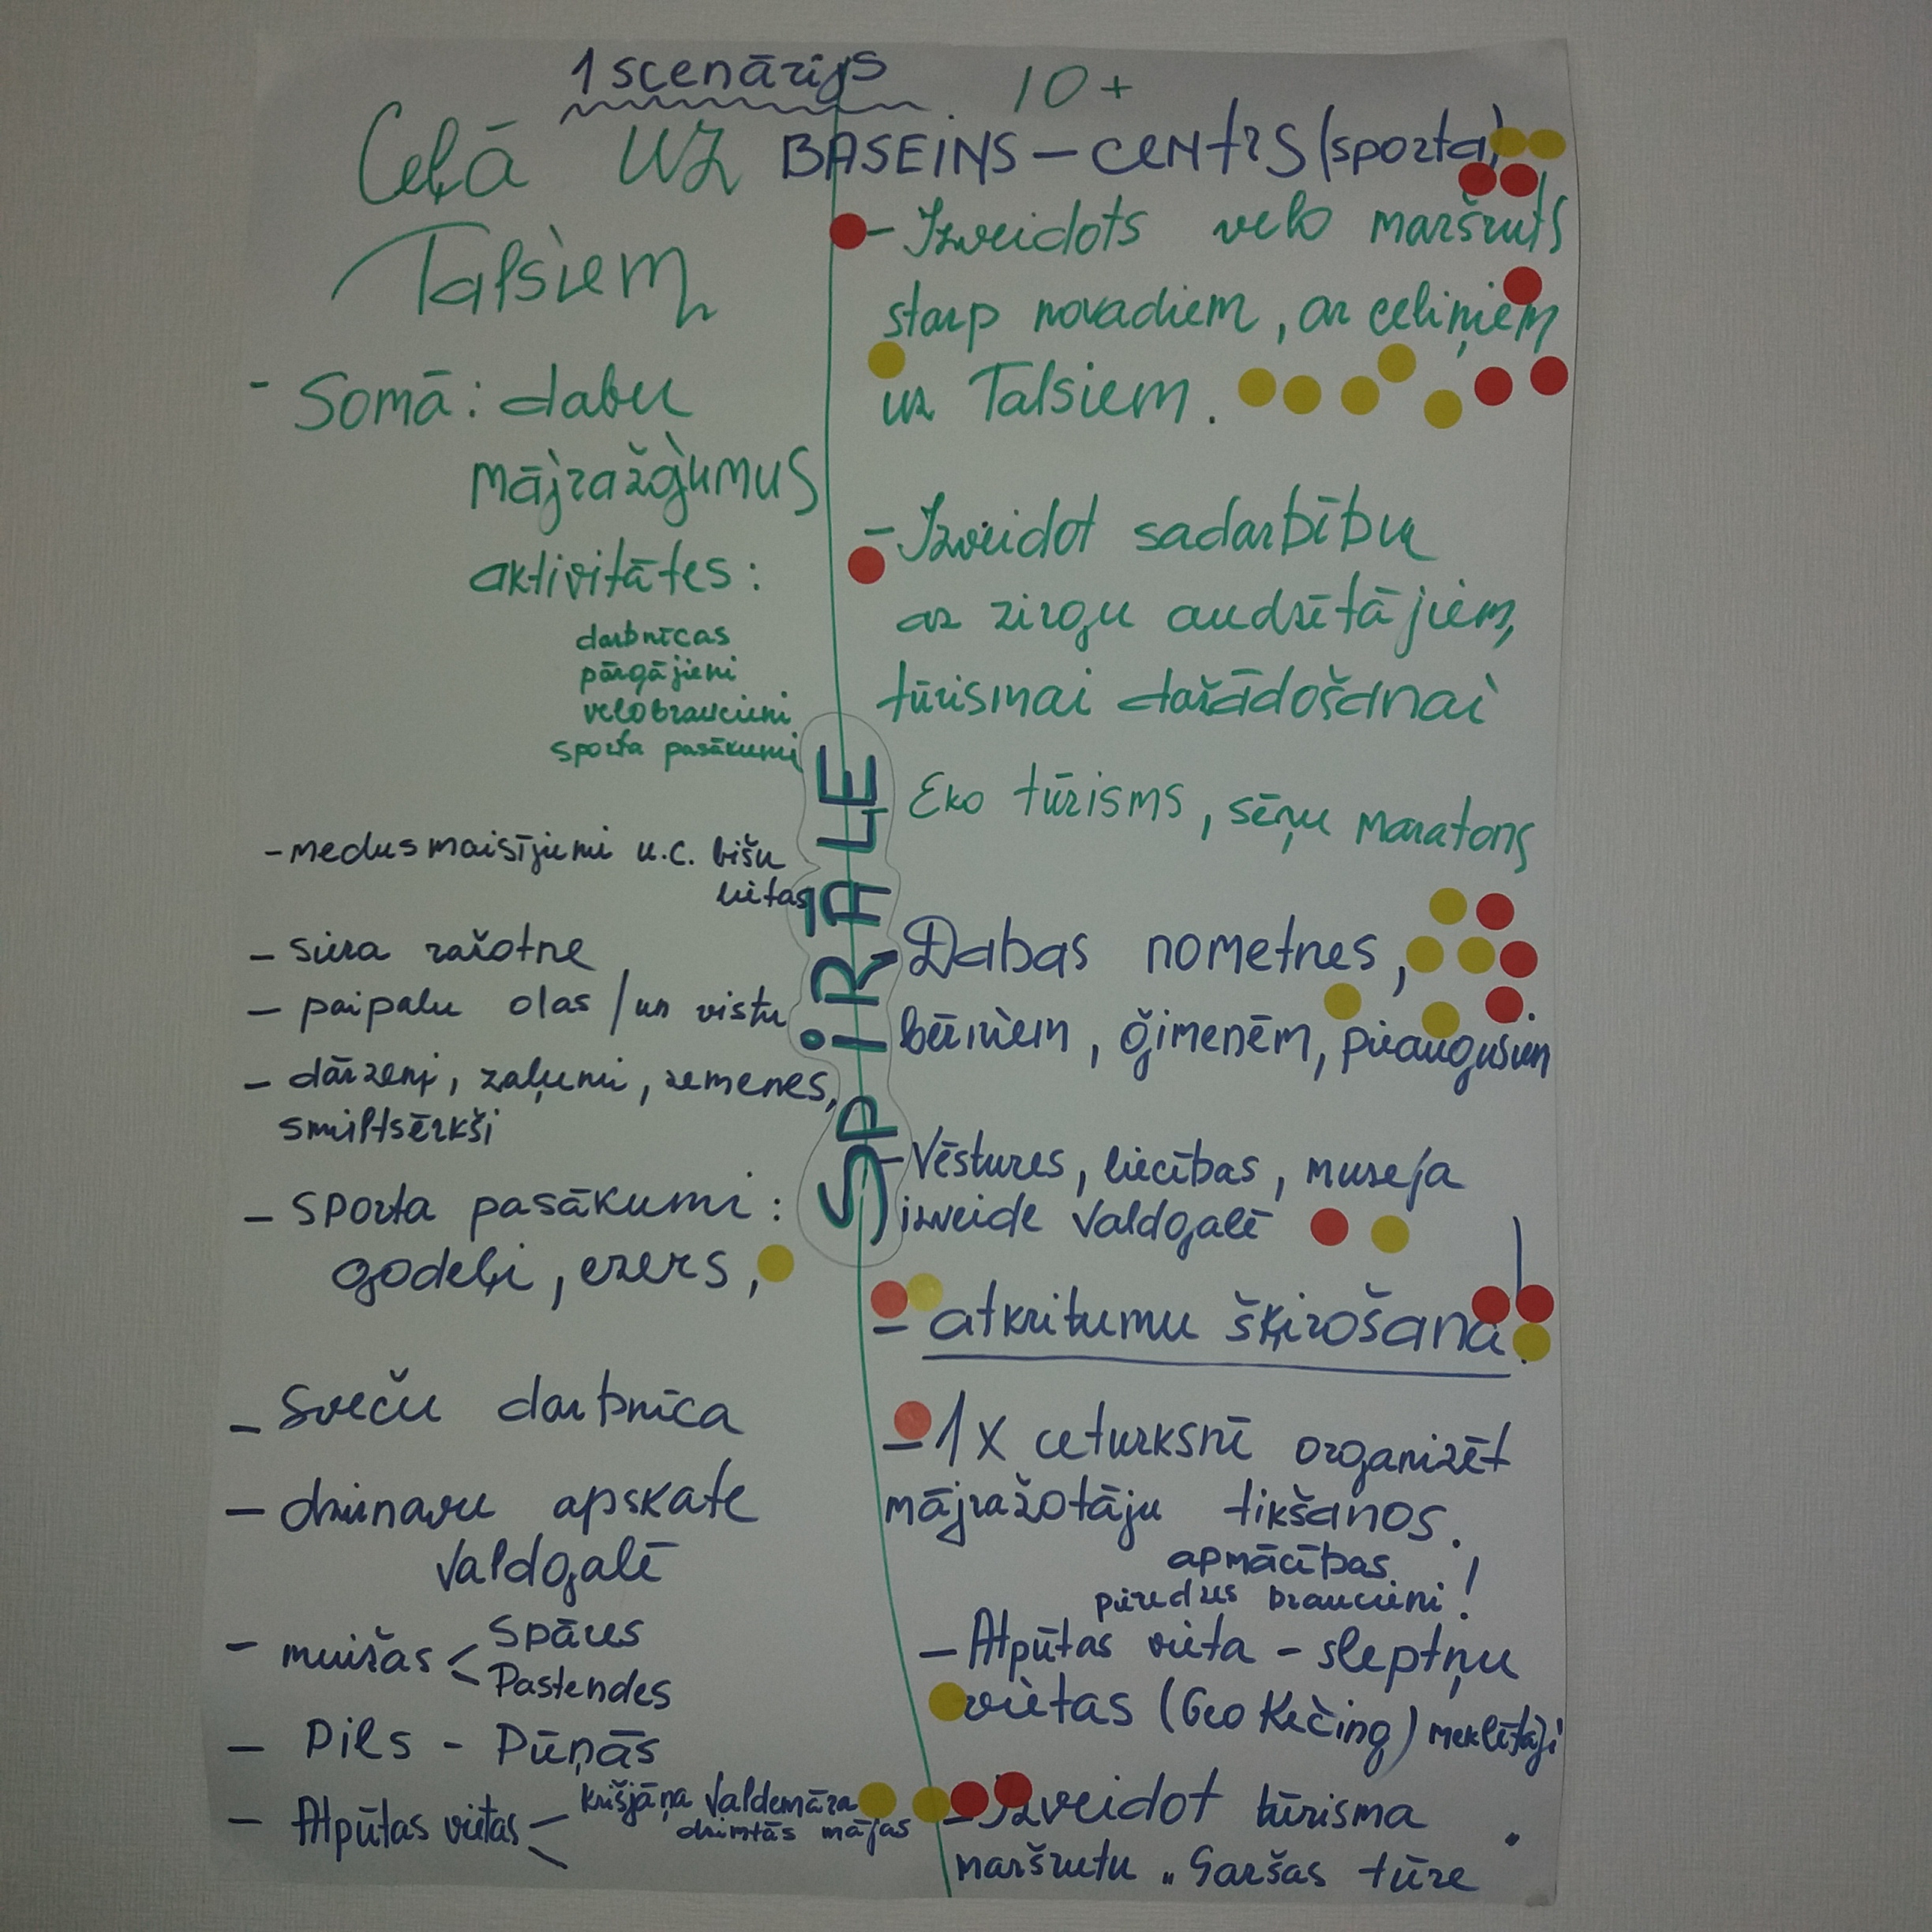 1 scenārijs
Ceļā uz
Talsiem
- Somā: dabu
mājražojumus
aktivitātes:
darbnīcas
pārgājieni
velobraucieni
sporta pasākumi
- medus maisījumi u.c. bišu
lietas
- siera ražotne
- paipalu olas / un vistu
- dārzeņi, zaļumi, zemenes,
smiltsērkšķi
- sporta pasākumi:
godeļi, ezers,
- Sveču darbnīca
- dzirnavu apskate
Valdgalē
- muižas < Spāres
Pastendes
- Pils - Pūņās
- Atpūtas vietas < Krišjāņa Valdemāra
dzimtās mājas
SPIRĀLE
10+
BASEINS - CENTRS (sporta)
- Izveidots velo maršruts
starp novadiem, ar celiņiem
uz Talsiem.
- Izveidot sadarbību
ar zirgu audzētājiem,
tūrismai dažādošanai
Eko tūrisms, sēņu maratons
Dabas nometnes,
bērniem, ģimenēm, pieaugušiem
- Vēstures, liecības, muzeja
izveide Valdgalē
- atkritumu šķirošana!
- 1x ceturksnī organizēt
mājražotāju tikšanos.
apmācības
pieredzes braucieni!
- Atpūtas vieta - slēptņu
vietas (Geo Kečing) meklētāji
- Izveidot tūrisma
maršrutu "Garšas tūre"